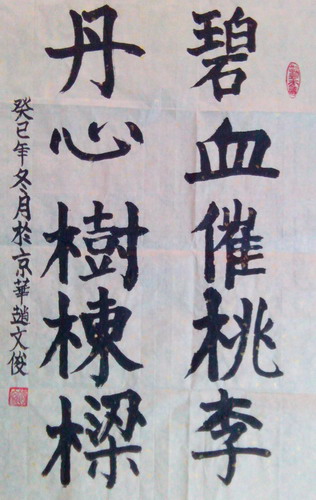 碧血催桃李
丹心樹棟樑
癸巳年冬月於京華趙文俊